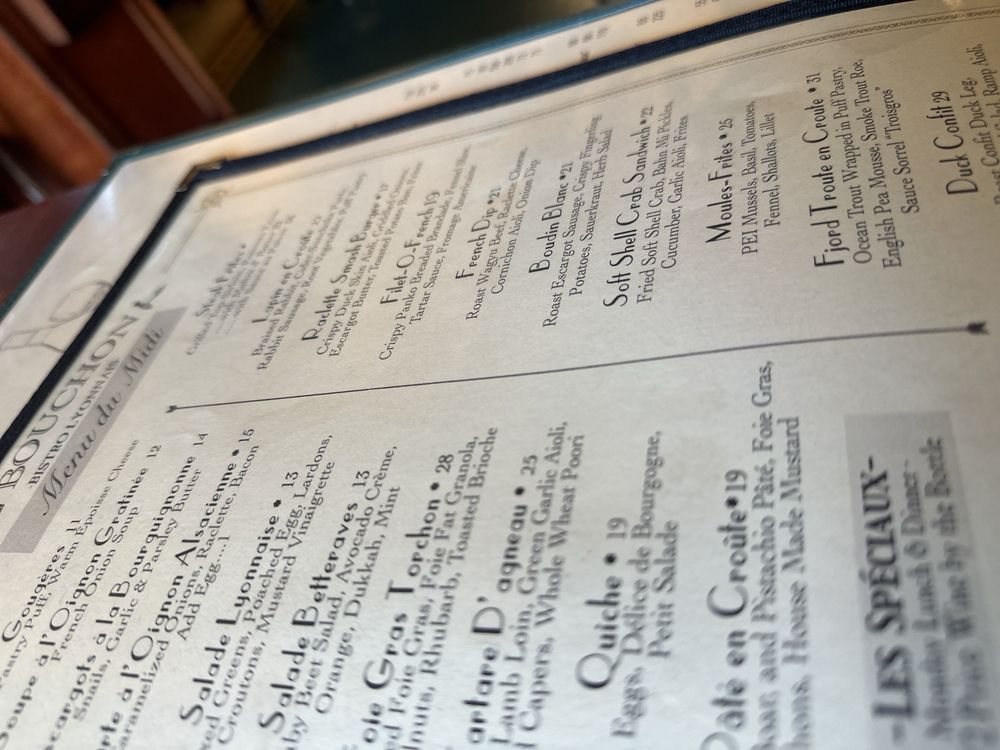 BOUCHON
BISTRO LYONNAIS
Menu du Midi
Gougères 11
Pastry Puff, Warm Époisse Cheese
Soupe à l'Oignon Gratinée 12
French Onion Soup
Escargots à la Bourguignonne 14
Snails, Garlic & Parsley Butter
à l'Oignon Alsacienne • 15
Caramelized Onions, Raclette, Bacon
Add Egg...1
Salade Lyonnaise • 13
Greens, Poached Egg, Lardons,
Croutons, Mustard Vinaigrette
Salade Betteraves 13
Beet Salad, Avocado Crème,
Orange, Dukkah, Mint
Foie Gras Torchon • 28
Foie Gras, Foie Fat Granola,
Rhubarb, Toasted Brioche
Tartare D'agneau • 25
Lamb Loin, Green Garlic Aioli,
Capers, Whole Wheat Poori
Quiche • 19
Eggs, Délice de Bourgogne,
Petit Salade
Pâté en Croûte • 19
and Pistachio Pâté, Foie Gras,
House Made Mustard
-LES SPÉCIAUX-
Lunch & Dinner
Wine by the Bottle
Lapin en Croûte
Braised Rabbit
Rabbit Sausage, Root
Raclette Smash Burger • 17
Crispy Duck Skin Aioli,
Escargot Butter, Toasted Potato Bun, Frites
Filet-O-French 19
Crispy Panko Breaded Brandade,
Tartar Sauce, Fromage Américaine
French Dip • 21
Roast Wagyu Beef, Raclette Cheese,
Cornichon Aioli, Onion Dip
Boudin Blanc • 21
Roast Escargot Sausage, Crispy Fingerling
Potatoes, Sauerkraut, Herb Salad
Soft Shell Crab Sandwich • 22
Fried Soft Shell Crab, Bahn Mi Pickles,
Cucumber, Garlic Aioli, Frites
Moules-Frites • 25
PEI Mussels, Basil, Tomatoes,
Fennel, Shallots, Lillet
Fjord Troute en Croute • 31
Ocean Trout Wrapped in Puff Pastry,
English Pea Mousse, Smoke Trout Roe,
Sauce Sorrel "Troisgros"
Duck Confit 29
Confit Duck Leg,
Ramp Aioli,